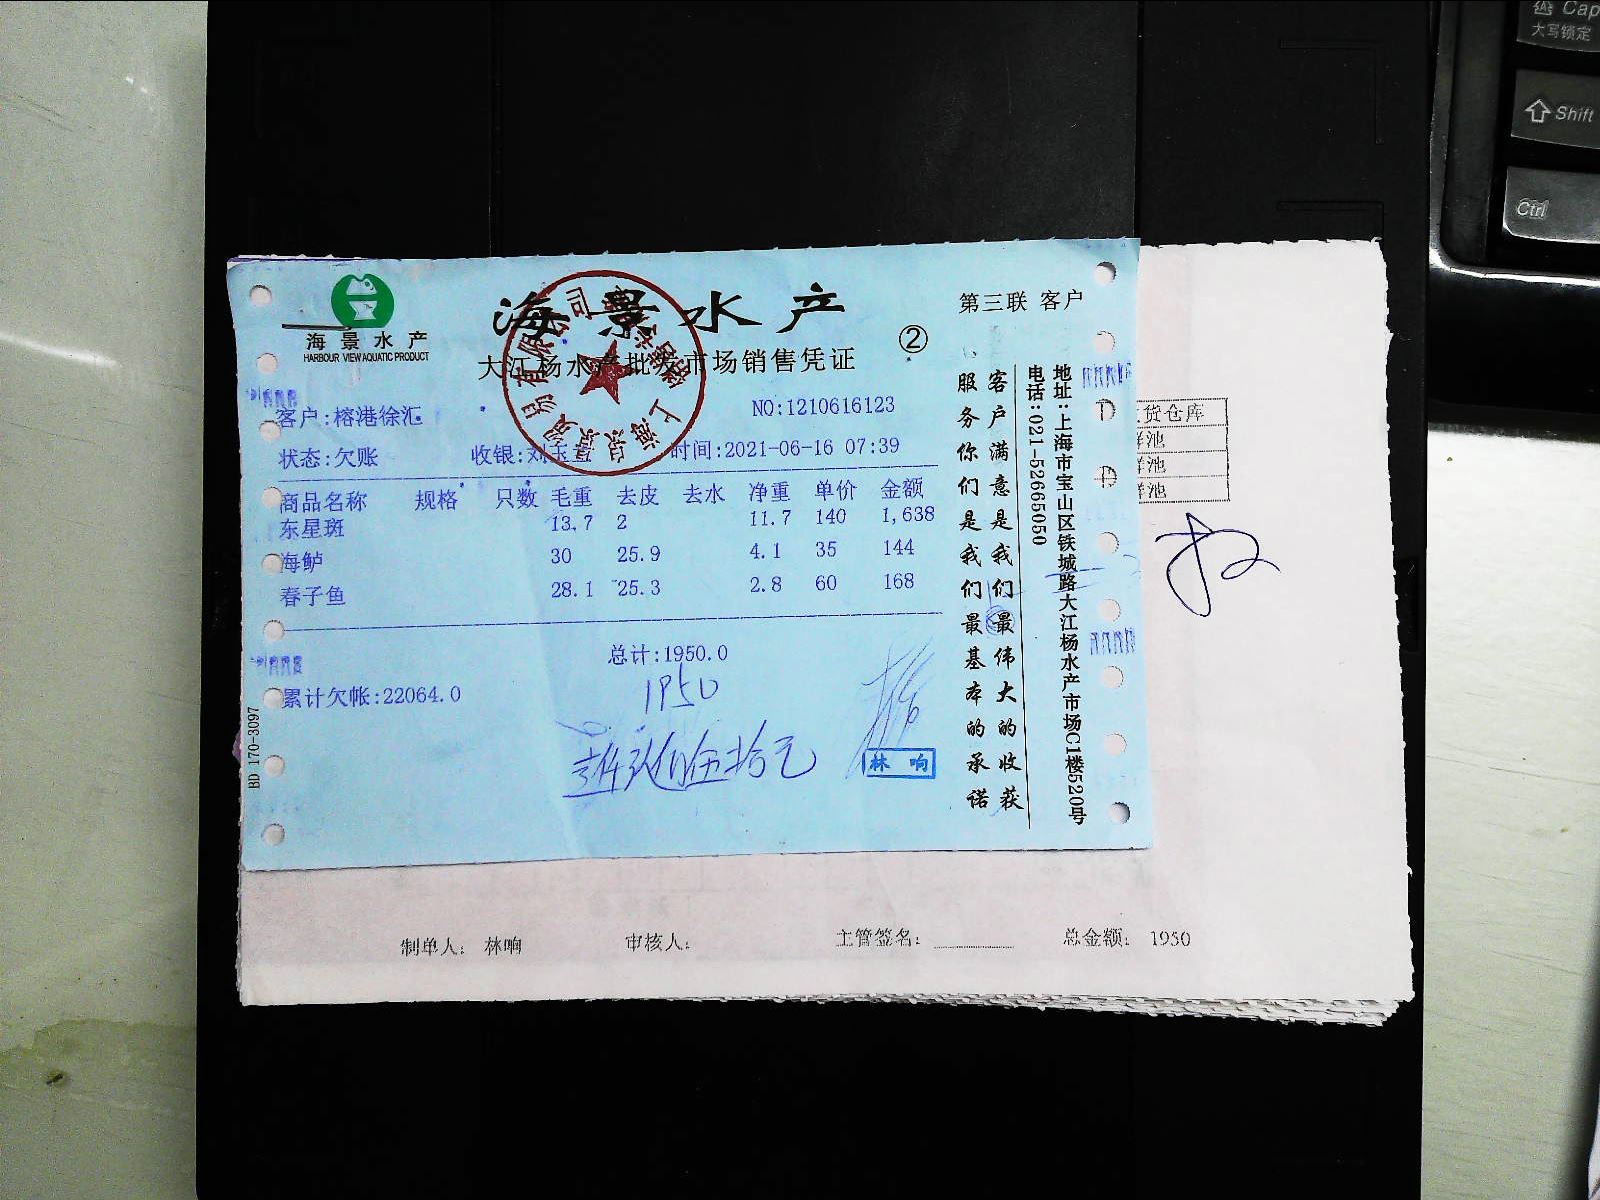 海景水产
HARBOUR VIEW AQUATIC PRODUCT
海景水产
大江杨水产批发市场销售凭证
②
第三联 客户
客户:榕港徐汇
NO:1210616123
状态:欠账 收银:刘玉 时间:2021-06-16 07:39
商品名称 规格 只数 毛重 去皮 去水 净重 单价 金额
东星斑 13.7 2 11.7 140 1,638
海鲈 30 25.9 4.1 35 144
春子鱼 28.1 25.3 2.8 60 168
总计:1950.0
累计欠帐:22064.0
1950
壹仟玖佰伍拾元
林响
BD 170-3097
客户满意是我们最伟大的收获
服务你们是我们最基本的承诺
地址:上海市宝山区铁城路大江杨水产市场C1楼520号
电话:021-52665050
货仓库
鲜池
鲜池
鲜池
制单人: 林响 审核人: 主管签名: 总金额: 1950
Cap
大写锁定
Shift
Ctrl